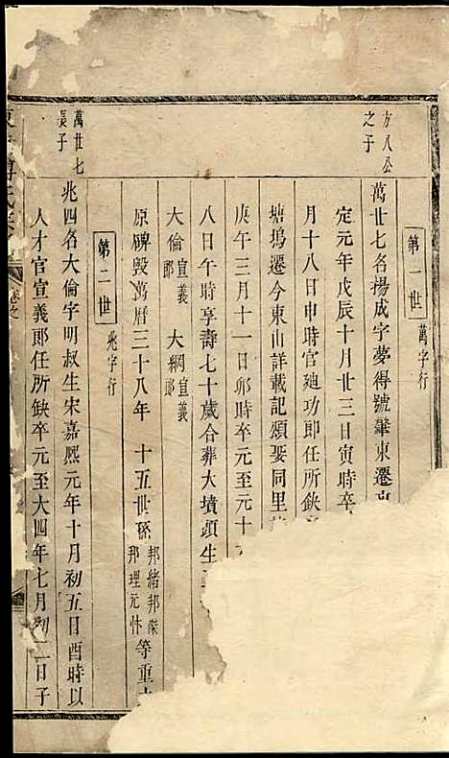 方八公
之子
第一世 萬字行
萬世七名揚成字夢得號華東遷東
定元年戊辰十月廿三日寅時卒
月十八日申時官廸功郎任所鈌
塘塢遷今東山詳載記頌娶同里
庚午三月十一日卯時卒元至元十
八日午時享壽七十歲合葬大墳頭生
大倫宣義郎 大綱宣義郎
原碑毀萬曆三十八年 十五世孫邦緒邦傑邦理元忭等重
第二世 兆字行
萬世七
長子
兆四名大倫字明叔生宋嘉熙元年十月初五日酉時以
人才官宣義郎任所鈌卒元至大四年七月初二日子